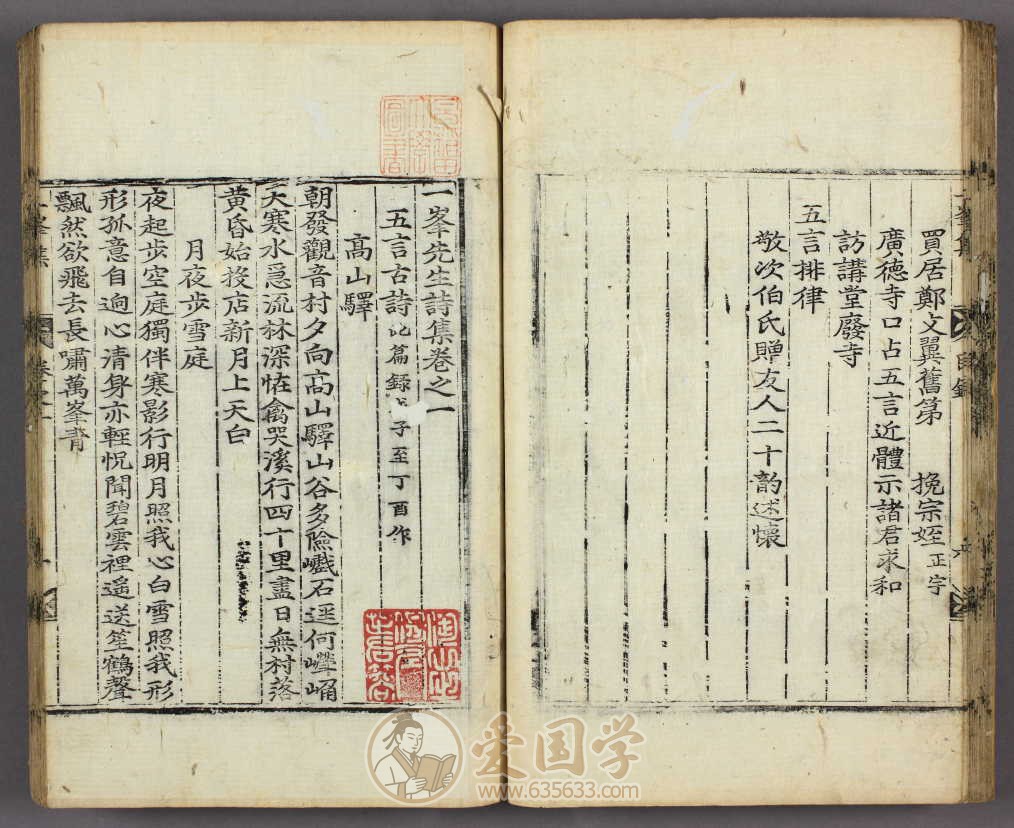 買居鄭文翼舊第 挽宗姪正字
廣德寺口占五言近體示諸君求和
訪講堂廢寺
五言排律
敬次伯氏贈友人二十韵述懷
一峯先生詩集卷之一
五言古詩 篇錄 子至丁酉作
高山驛
朝發觀音村夕向高山驛山谷多險巇石逕何崷崒
大寒水急流林深怪禽哭溪行四十里盡日無村落
黃昏始投店新月上天白
月夜步雪庭
夜起步空庭獨伴寒影行明月照我心白雪照我形
形孤意自逈心清身亦輕怳聞碧雲裡遥送笙鶴聲
飄然欲飛去長嘯萬峯靑
爱国学
www.635633.com